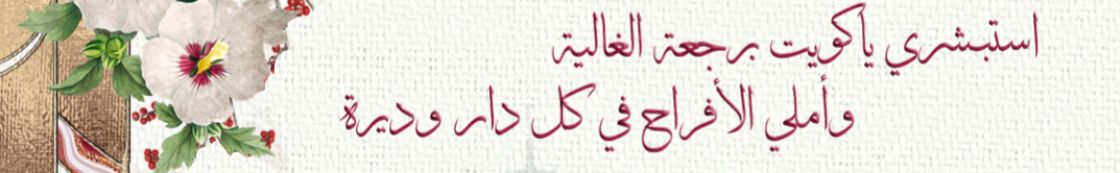 استبشري ياكويت برجعة الغالية
وأملي الأفراح في كل دار وديرة